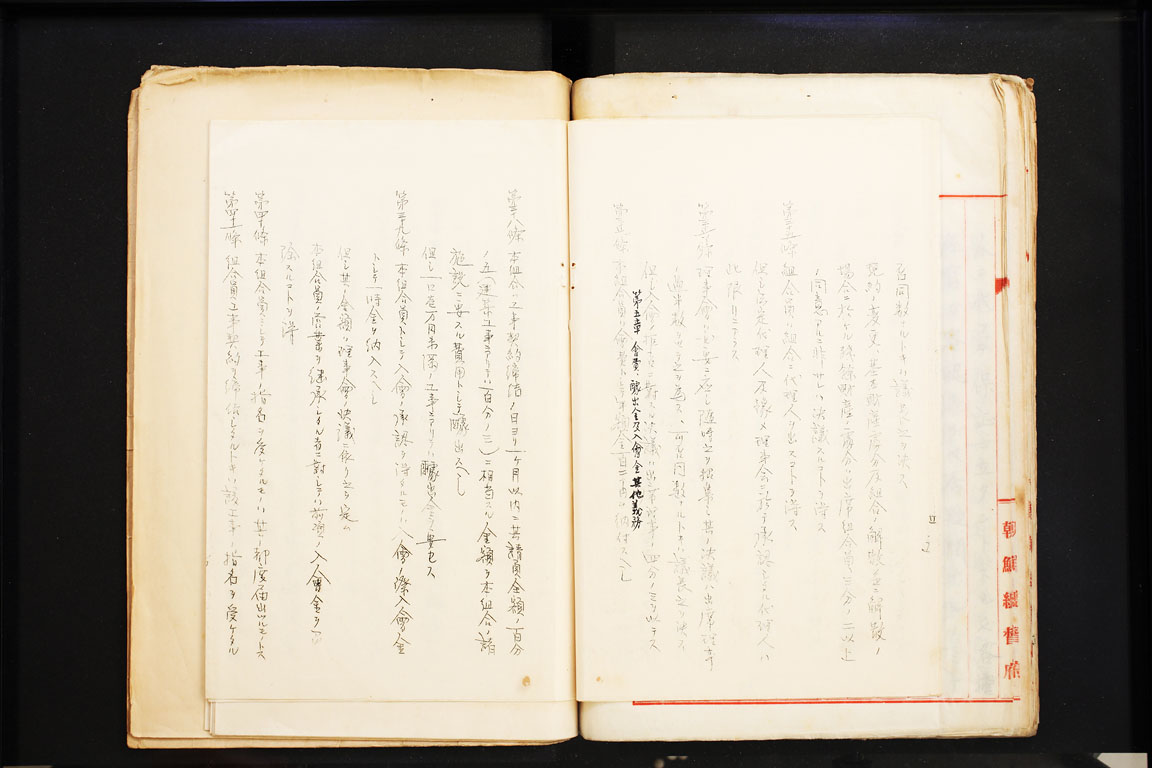 可否同数ナルトキハ議長之ヲ決ス
規約ノ変更、基本財産処分及組合ノ解散並ニ解散ノ
場合ニ於ケル残餘財産ノ處分ハ出席組合員三分ノ二以上
ノ同意アルニ非サレハ決議スルコトヲ得ス
第三十五條 組合員ハ組合ニ代理人ヲ出スコトヲ得ス
但シ
理事会ニ於テ承認シタル代理人ハ
此限リニアラス
第三十六條 理事會ハ必要ニ應シ随時之ヲ招集シ其ノ決議ハ出席理事
ノ過半数ヲ以テ之ヲ定ス、可否同数ナルトキハ議長之ヲ決ス
但シ入會ノ拒否ニ對シテ決議ハ出席理事ノ四分ノ三ヲ以テス
第五章 會費、醵出金及入會金其他義務
第三十七條 本組合員ハ會費トシテ
金百二十円ヲ納付スヘシ
第三十八條 本組合ハ工事契約締結ノ日ヨリ一ヶ月以内ニ其請負金額ノ百分
ノ五（建築工事ニアリテハ百分ノ三）ニ相当スル金額ヲ本組合ノ諸
施設ニ要スル費用トシテ醵出スヘシ
但シ一口壱万円未満ノ工事ニアリテハ醵出金ヲ要セス
第三十九條 本組合員トシテ入會ノ承認ヲ得タルモノハ入會ノ際入會金
トシテ一時金ヲ納入スヘシ
但シ其ノ金額ハ理事會ノ決議ニ依リ之ヲ定ム
本組合員ノ営業ヲ継承シタル者ニ對シテハ前項ノ入會金ヲ
除スルコトヲ得
第四十條 本組合員ニシテ工事ノ指名ヲ受ケタルモノハ其ノ都度届出ツルモノトス
第四十一條 組合員工事契約ヲ締結シタルトキハ該工事ノ指名ヲ受ケタル
朝鮮總督府